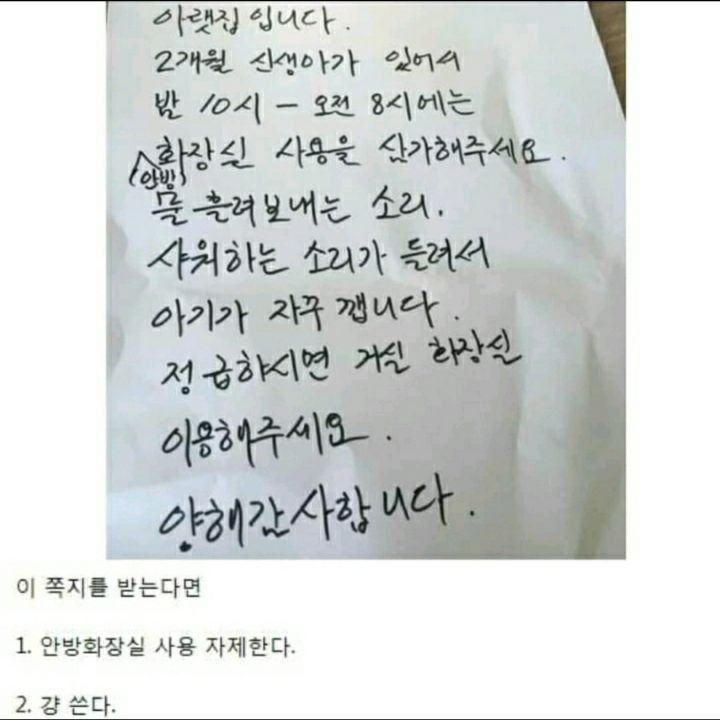 아랫집입니다.
2개월 신생아가 있어서
밤 10시 - 오전 8시에는
화장실 사용을 삼가해주세요.
(안방)
물 흘려보내는 소리.
샤워하는 소리가 들려서
아기가 자꾸 깹니다.
정 급하시면 거실 화장실
이용해주세요.
양해감사합니다.
이 쪽지를 받는다면
1. 안방화장실 사용 자제한다.
2. 걍 쓴다.